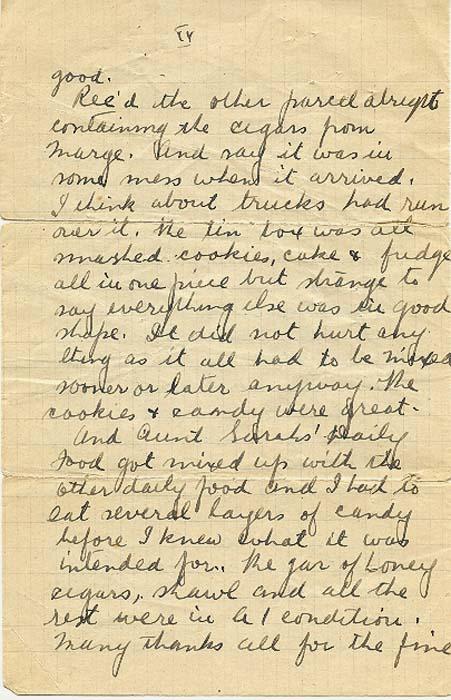 IV
good.
Rec'd the other parcel alright
containing the cigars from
Marge. And say it was in
some mess when it arrived.
I think about trucks had run
over it. The tin box was all
smashed. cookies, cake & fudge
all in one piece but strange to
say everything else was in good
shape. It did not hurt any
thing as it all had to be mixed
sooner or later anyway. The
cookies & candy were great.
And Aunt Sarahs' Daily
Food got mixed up with the
other daily food and I had to
eat several layers of candy
before I knew what it was
intended for. The jar of honey
cigars, shawl and all the
rest were in A1 condition.
Many thanks all for the fine